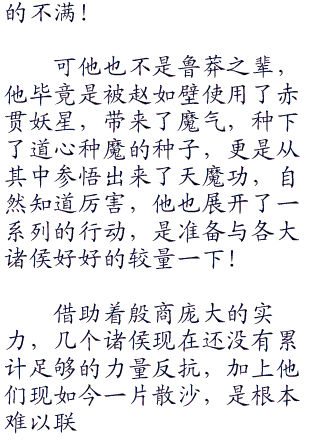 的不满！
可他也不是鲁莽之辈，
他毕竟是被赵如壁使用了赤
贯妖星，带来了魔气，种下
了道心种魔的种子，更是从
其中参悟出来了天魔功，自
然知道厉害，他也展开了一
系列的行动，是准备与各大
诸侯好好的较量一下！
借助着殷商庞大的实
力，几个诸侯现在还没有累
计足够的力量反抗，加上他
们现如今一片散沙，是根本
难以联